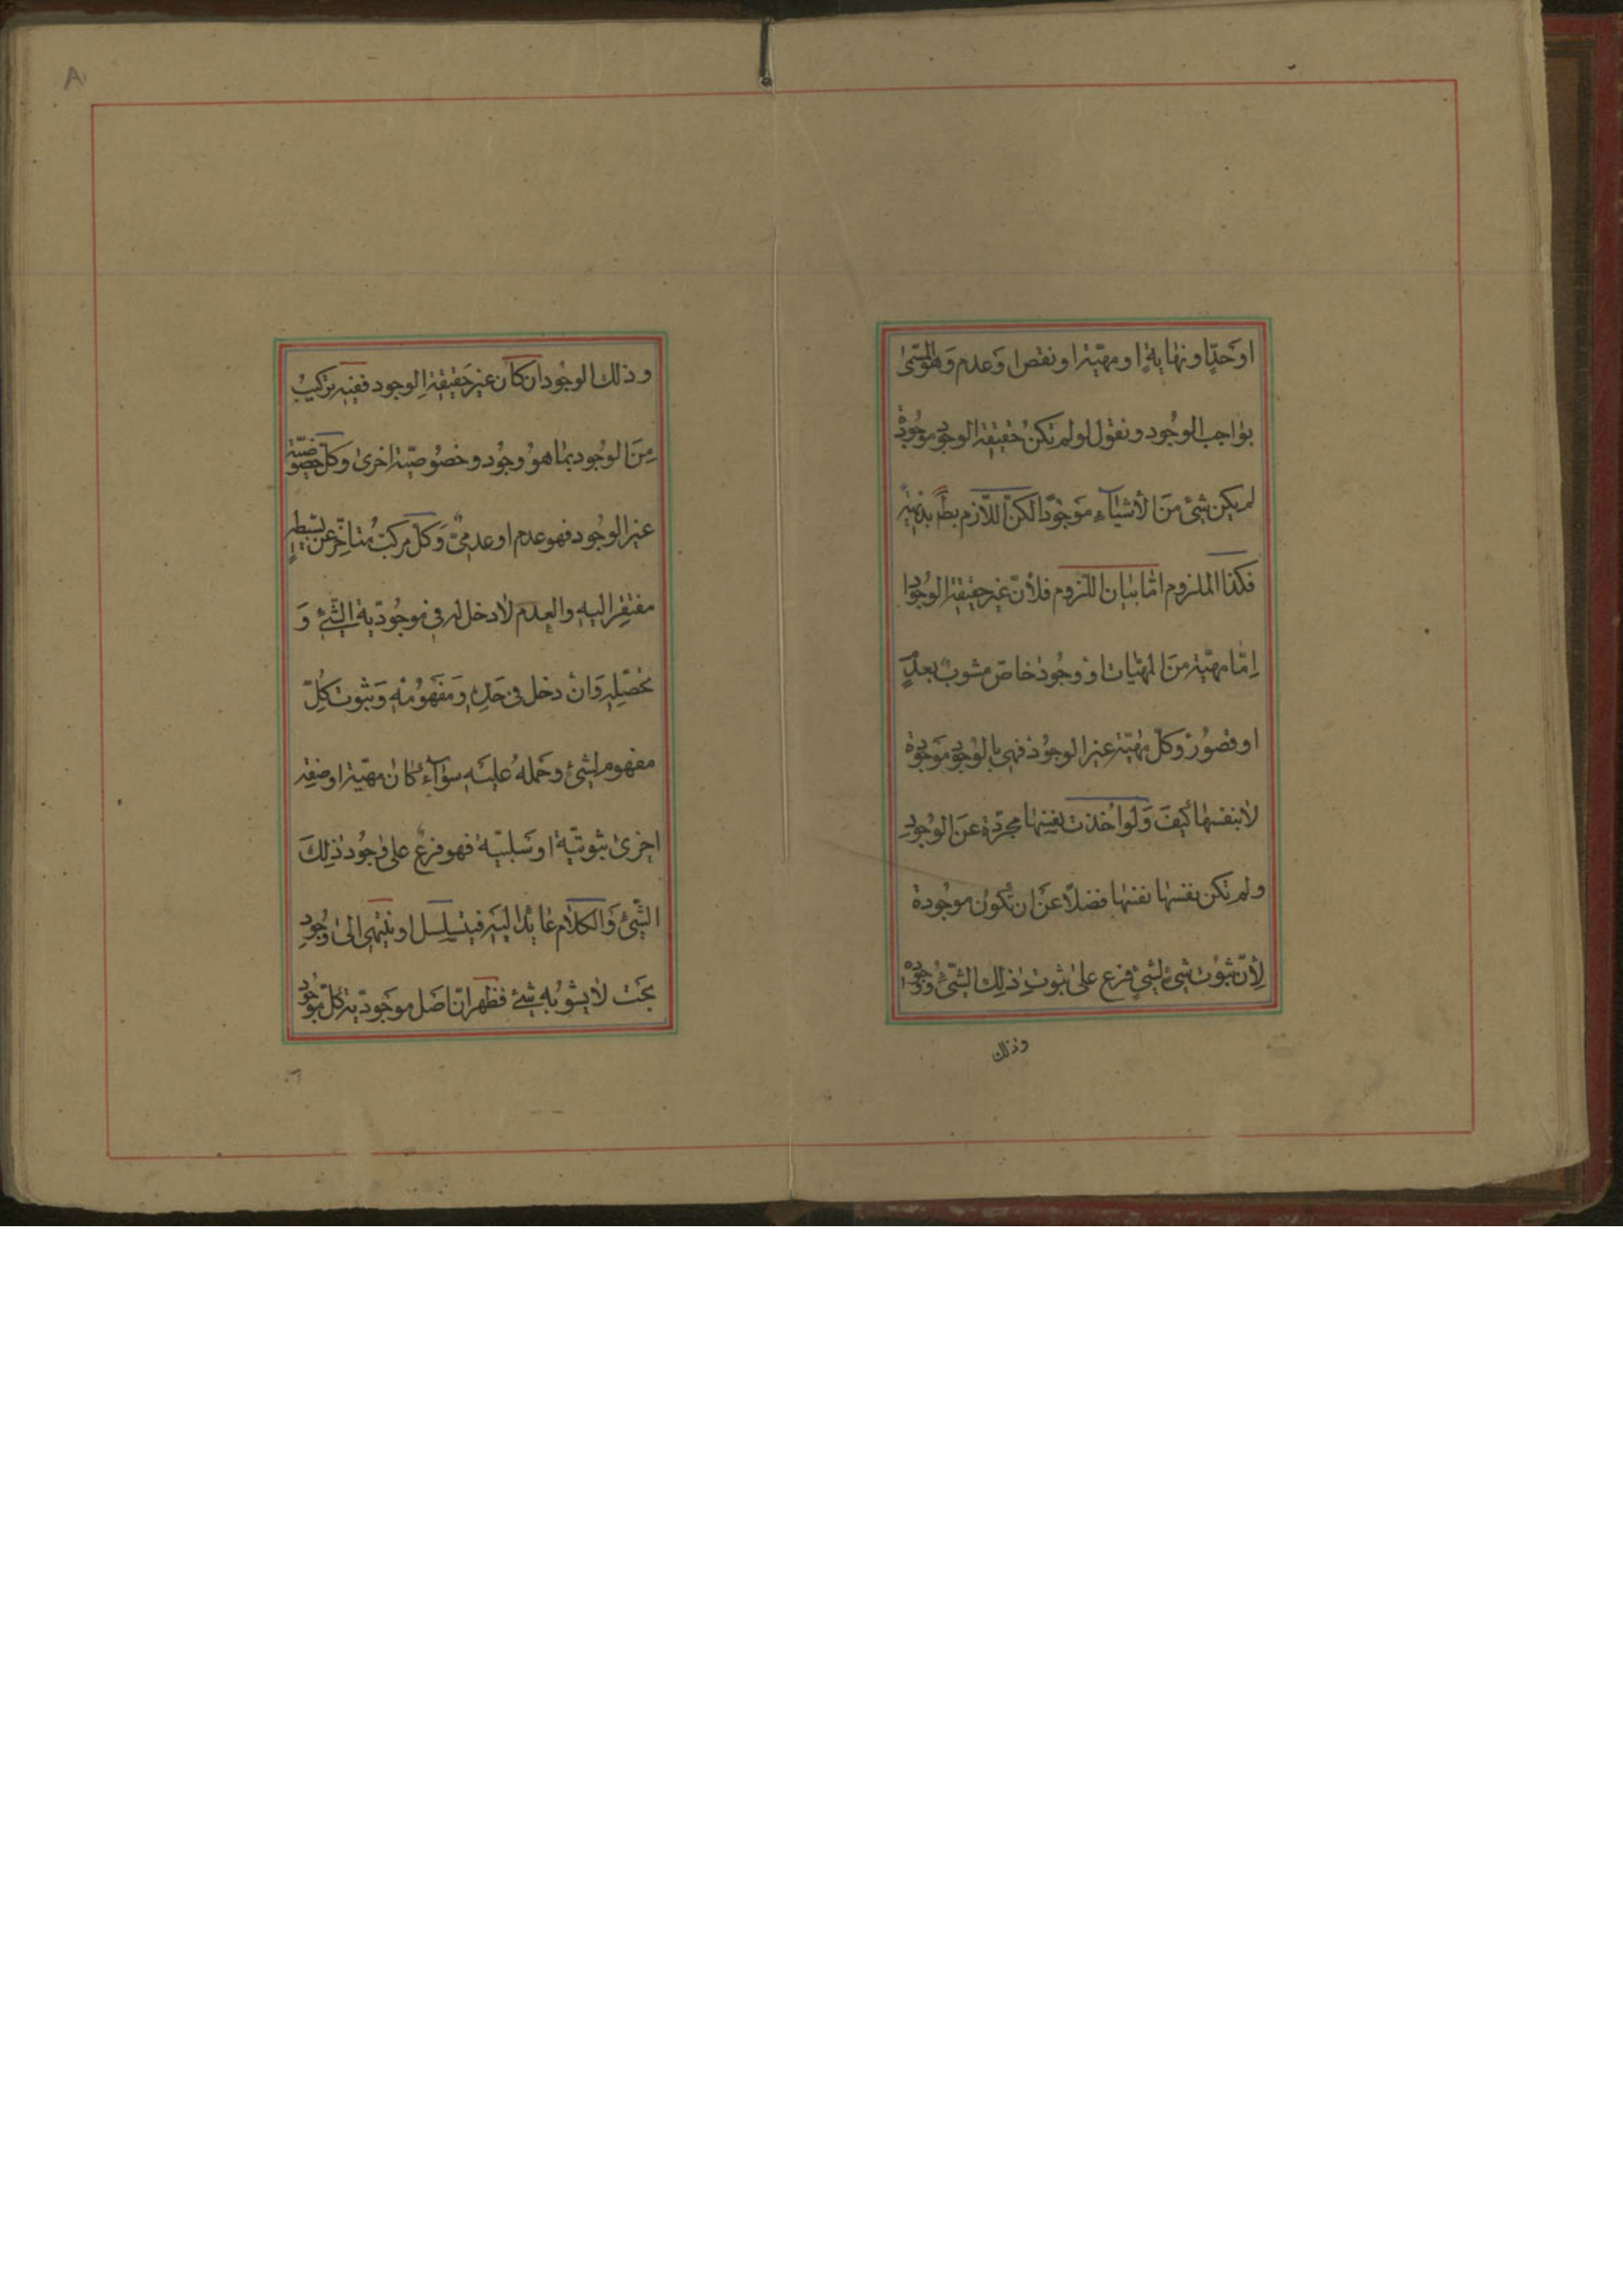 او حدّ او نهاية او مهيّة او نقص او عدم وهو المسمّى
بواجب الوجود ونقول لو لم تكن حقيقة الوجود موجودة
لم يكن شئ من الأشياء موجودًا لكنّ اللّازم بط بديهيّة
فكذا الملزوم امّا بيان اللّزوم فلأنّ غير حقيقة الوجود
إمّا مهيّة من المهيّات او وجود خاصّ مشوب بعدم
او قصور وكلّ مهيّة غير الوجود فهي بالوجود موجودة
لا بنفسها كيف ولو اخذت بنفسها مجرّدة عن الوجود
ولم تكن نفسها نفسها فضلًا عن ان تكون موجودة
لأنّ ثبوت شئ لشئ فرع على ثبوت ذلك الشّئ ووجوده
وذلك
وذلك الوجود ان كان غير حقيقة الوجود ففيه تركيب
من الوجود بما هو وجود وخصوصيّة اخرى وكلّ خصوصيّة
غير الوجود فهو عدم او عدميّ وكلّ مركّب متأخّر عن بسيطه
مفتقر اليه والعدم لا دخل له في موجوديّة الشّئ و
تحصّله وان دخل في حدّه ومفهومه وثبوت كلّ
مفهوم لشئ وحمله عليه سوآء كان مهيّة او صفة
اخرى ثبوتيّة او سلبيّة فهو فرع على وجود ذلك
الشّئ والكلام عائد اليه فيتسلسل او ينتهي الى وجود
بحت لا يشوبه شئ فظهر انّ اصل موجوديّة كلّ موجود